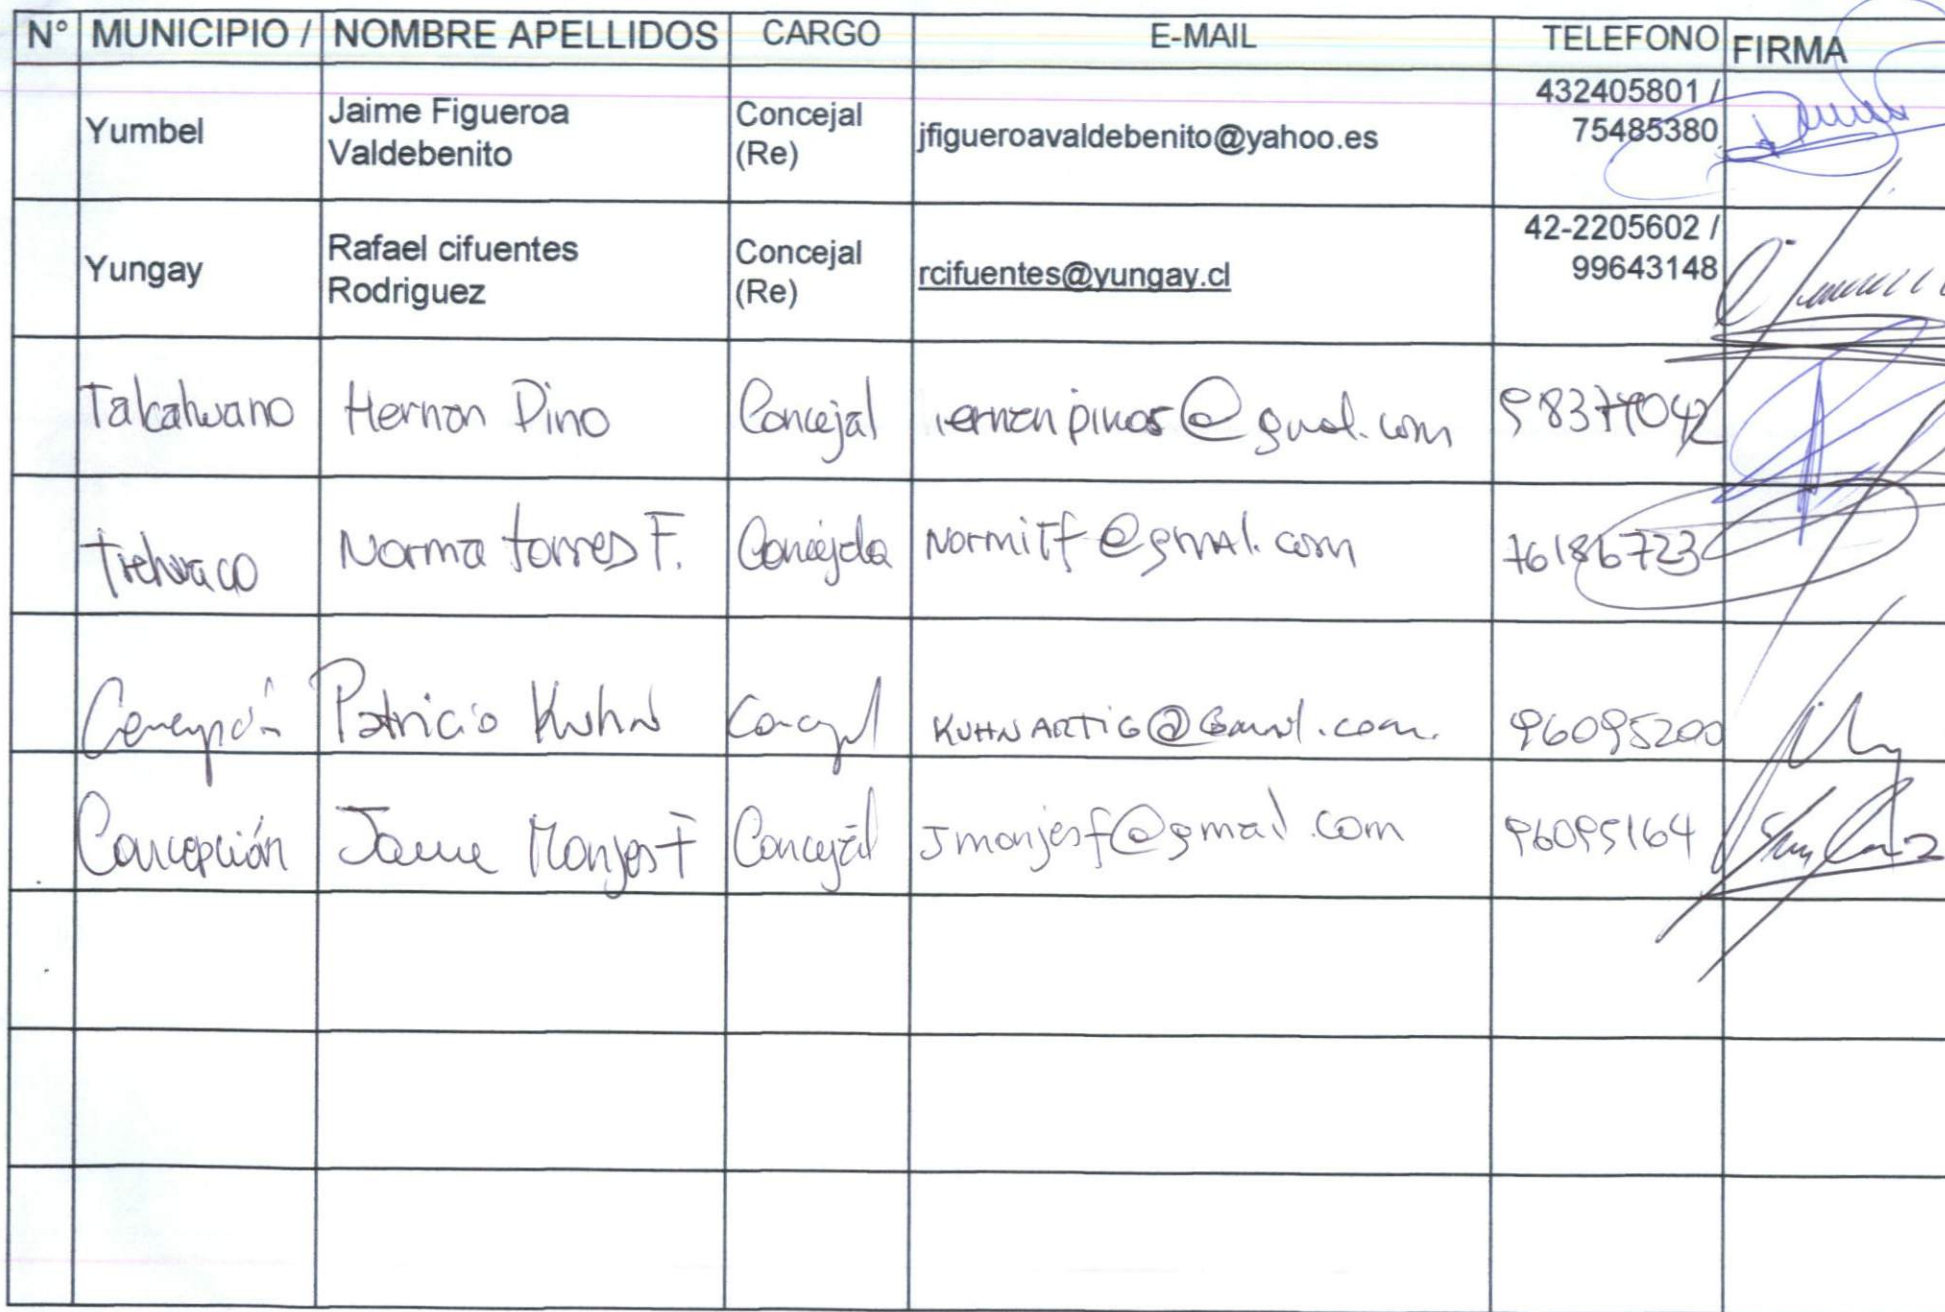 N° MUNICIPIO / NOMBRE APELLIDOS CARGO E-MAIL TELEFONO FIRMA
Yumbel Jaime Figueroa Valdebenito Concejal (Re) jfigueroavaldebenito@yahoo.es 432405801 / 75485380
Yungay Rafael cifuentes Rodriguez Concejal (Re) rcifuentes@yungay.cl 42-2205602 / 99643148
Talcahuano Hernan Pino Concejal
Trehuaco Norma torres F. Concejala Normitf@gmail.com 76186723
Concepción Patricio Kuhn Concejal KUHNARTIG@Gmail.com. 96095200
Concepción Jaime Monjes F Concejal Jmonjesf@gmail.com 96095164